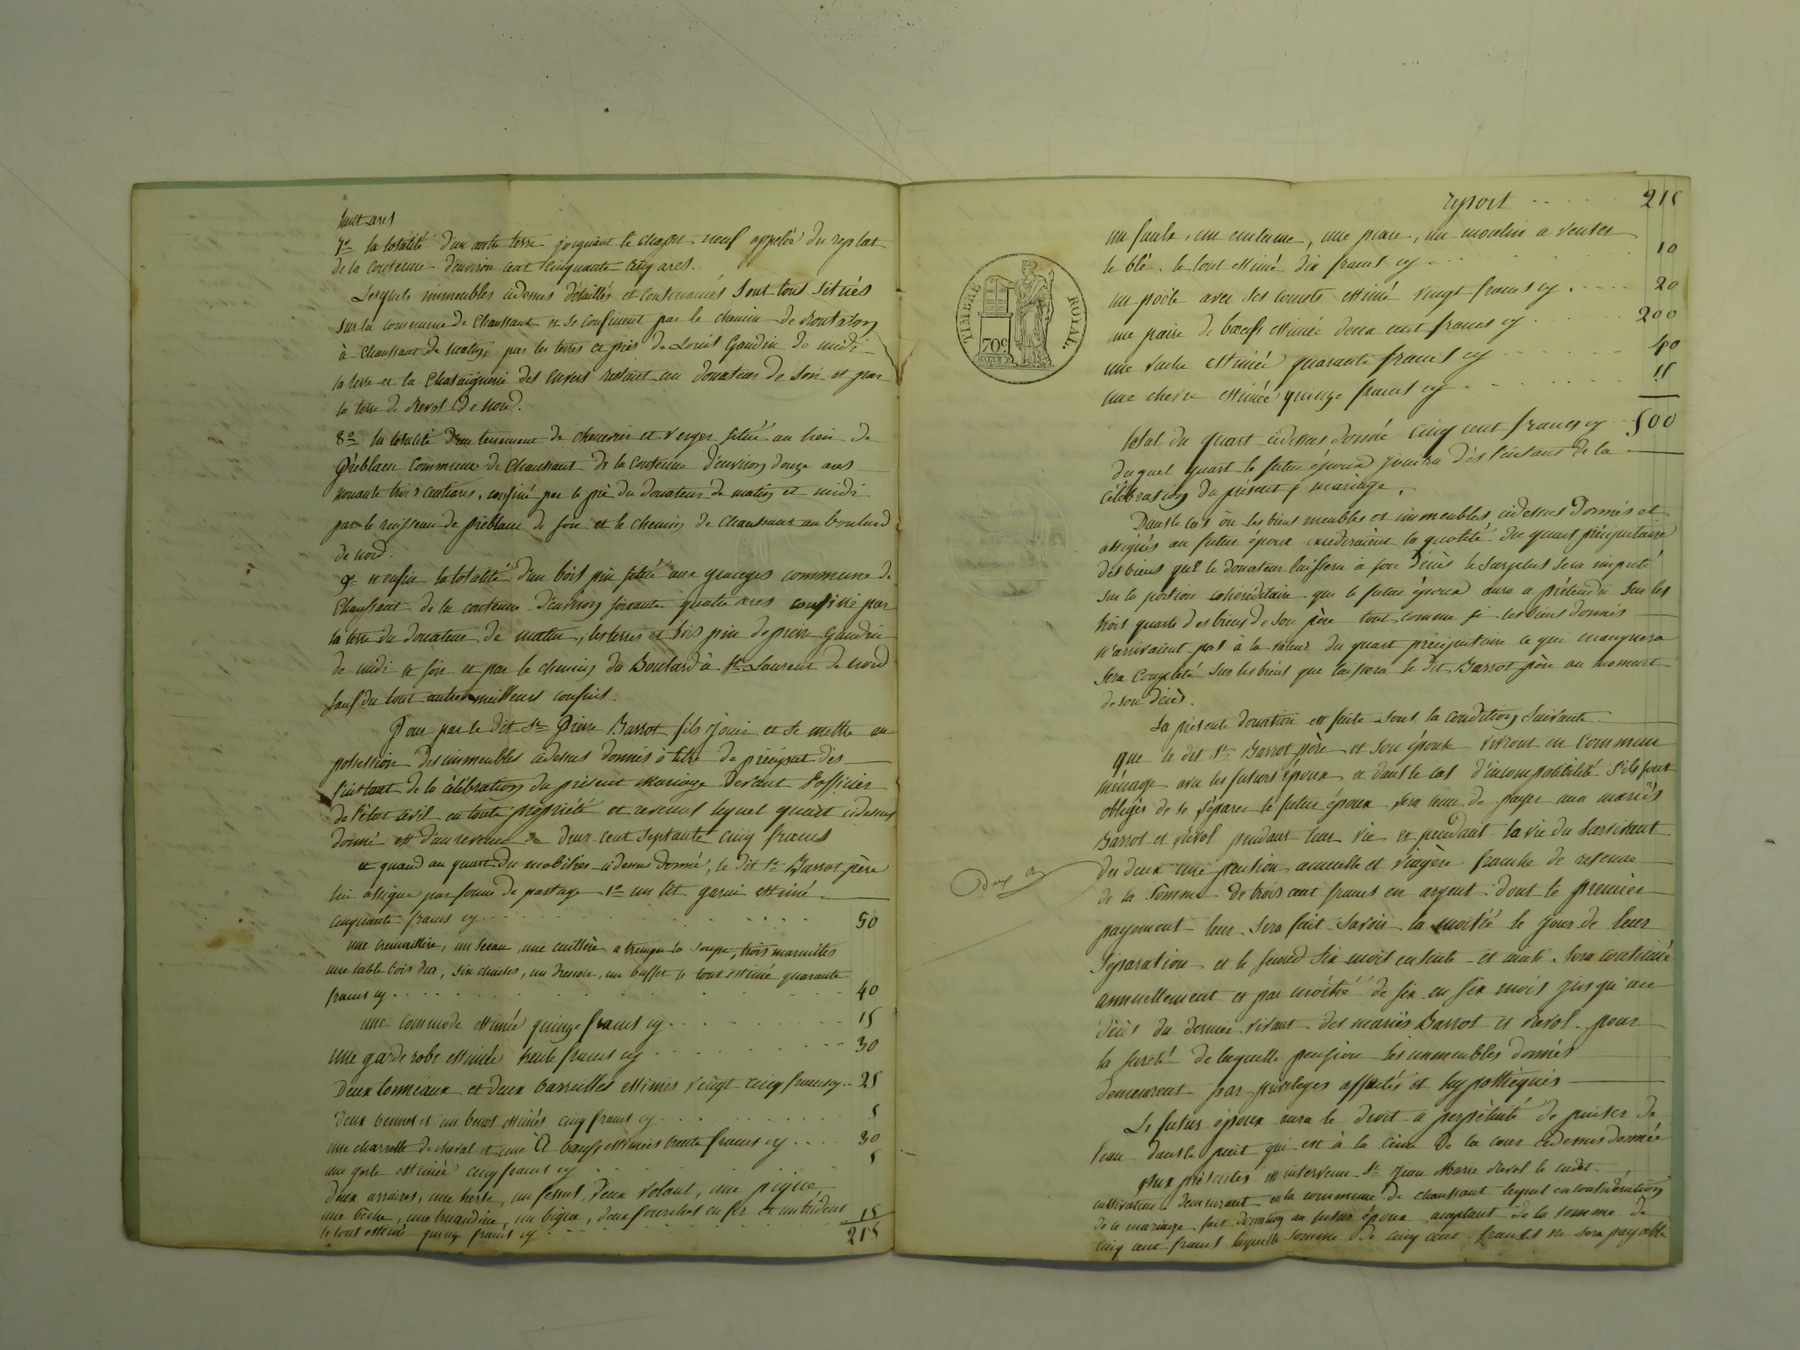 huit ares
7º la totalité d'un autre terre joignant le chapon neuf appelée du replat
de la contenue d'environ cent cinquante cinq ares.
Lesquels immeubles cidessus détaillés et contenancés sont tous situés
sur la commune de Chaussant et se confinent par le chemin de
à Chaussant de matin, par les terres et prés de Louis Gaudin de midi
la terre et la Chataignerie des envers restant au donateur de soir et par
la terre de Revol de nord.
8º la totalité d'un tenement de chenevier et verger situé au lieu de
Préblanc commune de Chaussant de la contenue d'environ douze ares
nonante trois centiares, confiné par le pré du donateur de matin et midi
par le ruisseau de Préblanc de soir et le chemin de Chaussant au boulard
de nord.
9º et enfin la totalité d'un bois pin situé aux granges commune de
Chaussant de la contenue d'environ soixante quatre ares confiné par
la terre du donateur de matin, les terres et bois pin de pierre Gaudin
de midi et soir et par le chemin du Boulard à St Laurent de nord
sauf du tout autres meilleurs confins.
Pour par le dit Sr Pierre Barrot fils jouir et se mettre en
possession des immeubles cidessus donnés à titre de préciput dès
l'instant de la célébration du présent mariage devant l'officier
de l'état civil en toute propriété et revenus lequel quart cidessus
donné est d'un revenu de deux cent septante cinq francs
et quand au quart du mobilier cidessus donné, le dit Sr Barrot père
lui assigne par forme de partage 1º un lit garni estimé
cinquante francs cy 50
une cremaillère, un seau une cuillère a tremper la soupe, trois marmites
une table bois dur, six chaises, un dressoir, un buffet le tout estimé quarante
francs cy 40
une commode estimée quinze francs cy 15
une garde robe estimée trente francs cy 30
Deux tonneaux et deux barreilles estimés vingt cinq francs cy 25
deux bennes et un benot estimés cinq francs cy 5
une charrette de cheval et une à bœufs estimées trente francs cy 30
une estimée cinq francs cy 5
deux arraires, une herse, un fessou, deux volant, une pigne
une bèche, une, un bigue, deux fourches en fer et un trident
le tout estimé quinze francs cy 15
215
report 215
un faulx, un enclume, une, un moulin a venter
le blé le tout estimé dix francs cy 10
un poële avec ses cornets estimé vingt francs cy 20
une paire de bœufs estimée deux cent francs cy 200
une vache estimée quarante francs cy 40
une chevre estimée quinze francs cy 15
total du quart cidessus donné cinq cent francs cy 500
duquel quart le futur époux jouira dès l'instant de la
célébration du présent mariage.
TIMBRE ROYAL
70c
Dans le cas où les biens meubles et immeubles cidessus donnés et
assignés au futur époux excederaient la quotité du quart préciputaire
des biens que le donateur laissera à son décès le surplus sera imputé
sur la portion cohéréditaire que le futur époux aura a prétendre sur les
trois quarts des biens de son père tout comme si les biens donnés
n'arrivaient pas à la valeur du quart préciputaire ce qui manquera
sera completé sur les biens que laissera le dit Barrot père au moment
de son décès.
La présente donation est faite sous la condition suivante
que le dit Sr Barrot père et son épouse vivront en commun
ménage avec les futurs époux et dans le cas d'incompatibilité s'ils sont
obligés de se séparer le futur époux sera tenu de payer aux mariés
Barrot et Revol pendant leur vie et pendant la vie du survivant
des deux une pension annuelle et viagère franche de retenue
de la somme de trois cent francs en argent dont le premier
payement leur sera fait savoir la moitié le jour de leur
séparation et le second six mois ensuite et ainsi sera continué
annuellement et par moitié de six en six mois jusqu'au
décès du dernier vivant des mariés Barrot et Revol pour
la sureté de laquelle pension les immeubles donnés
demeurent par privilèges affectés et hypothéqués
Le futur époux aura le droit a perpétuité de puiser de
l'eau dans le puit qui est à la cime de la cour cidessus donnée
Aux présentes est intervenu Sr Jean Marie Revol le cadet
cultivateur demeurant en la commune de chaussant lequel en considération
de ce mariage fait donation au futur époux acceptant de la somme de
cinq cent francs laquelle somme de cinq cent francs ne sera payable